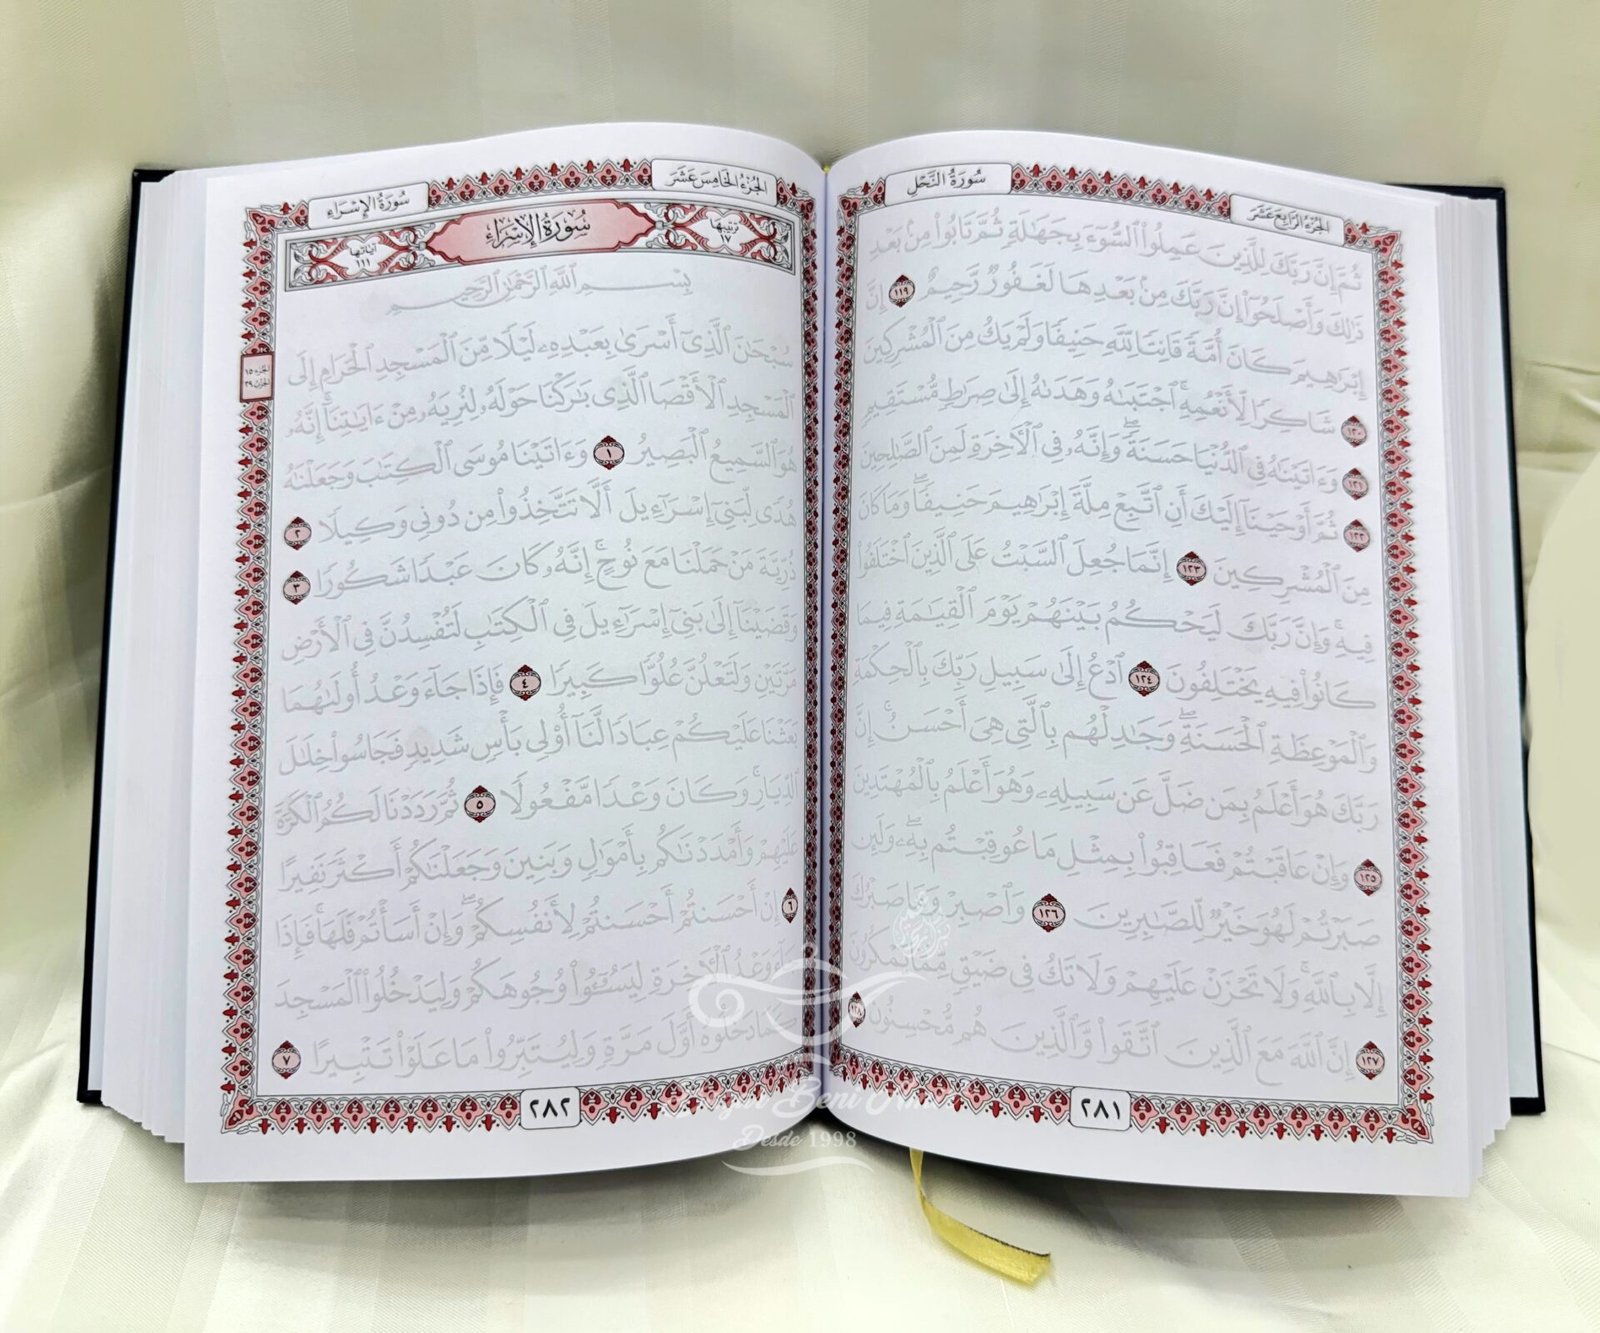 سُورَةُ النَّحْلِ
الجُزءُ الرَّابِعَ عَشَرَ
ثُمَّ إِنَّ رَبَّكَ لِلَّذِينَ عَمِلُوا۟ ٱلسُّوٓءَ بِجَهَٰلَةٍ ثُمَّ تَابُوا۟ مِنۢ بَعْدِ
ذَٰلِكَ وَأَصْلَحُوٓا۟ إِنَّ رَبَّكَ مِنۢ بَعْدِهَا لَغَفُورٌ رَّحِيمٌ ١١٩ إِنَّ
إِبْرَٰهِيمَ كَانَ أُمَّةً قَانِتًا لِّلَّهِ حَنِيفًا وَلَمْ يَكُ مِنَ ٱلْمُشْرِكِينَ
١٢٠ شَاكِرًا لِّأَنْعُمِهِ ۚ ٱجْتَبَىٰهُ وَهَدَىٰهُ إِلَىٰ صِرَٰطٍ مُّسْتَقِيمٍ
١٢١ وَءَاتَيْنَٰهُ فِى ٱلدُّنْيَا حَسَنَةً ۖ وَإِنَّهُۥ فِى ٱلْءَاخِرَةِ لَمِنَ ٱلصَّٰلِحِينَ
١٢٢ ثُمَّ أَوْحَيْنَآ إِلَيْكَ أَنِ ٱتَّبِعْ مِلَّةَ إِبْرَٰهِيمَ حَنِيفًا ۖ وَمَا كَانَ
مِنَ ٱلْمُشْرِكِينَ ١٢٣ إِنَّمَا جُعِلَ ٱلسَّبْتُ عَلَى ٱلَّذِينَ ٱخْتَلَفُوا۟
فِيهِ ۚ وَإِنَّ رَبَّكَ لَيَحْكُمُ بَيْنَهُمْ يَوْمَ ٱلْقِيَٰمَةِ فِيمَا
كَانُوا۟ فِيهِ يَخْتَلِفُونَ ١٢٤ ٱدْعُ إِلَىٰ سَبِيلِ رَبِّكَ بِٱلْحِكْمَةِ
وَٱلْمَوْعِظَةِ ٱلْحَسَنَةِ ۖ وَجَٰدِلْهُم بِٱلَّتِى هِىَ أَحْسَنُ ۚ إِنَّ
رَبَّكَ هُوَ أَعْلَمُ بِمَن ضَلَّ عَن سَبِيلِهِۦ ۖ وَهُوَ أَعْلَمُ بِٱلْمُهْتَدِينَ
١٢٥ وَإِنْ عَاقَبْتُمْ فَعَاقِبُوا۟ بِمِثْلِ مَا عُوقِبْتُم بِهِۦ ۖ وَلَئِن
صَبَرْتُمْ لَهُوَ خَيْرٌ لِّلصَّٰبِرِينَ ١٢٦ وَٱصْبِرْ وَمَا صَبْرُكَ
إِلَّا بِٱللَّهِ ۚ وَلَا تَحْزَنْ عَلَيْهِمْ وَلَا تَكُ فِى ضَيْقٍ مِّمَّا يَمْكُرُونَ
١٢٧ إِنَّ ٱللَّهَ مَعَ ٱلَّذِينَ ٱتَّقَوا۟ وَّٱلَّذِينَ هُم مُّحْسِنُونَ ١٢٨
٢٨١
الجُزءُ الخَامِسَ عَشَرَ
سُورَةُ الإِسْرَاءِ
ترتيبها ١٧
سُورَةُ الإِسْرَاءِ
آياتها ١١١
بِسْمِ ٱللَّهِ ٱلرَّحْمَٰنِ ٱلرَّحِيمِ
سُبْحَٰنَ ٱلَّذِىٓ أَسْرَىٰ بِعَبْدِهِۦ لَيْلًا مِّنَ ٱلْمَسْجِدِ ٱلْحَرَامِ إِلَى
ٱلْمَسْجِدِ ٱلْأَقْصَا ٱلَّذِى بَٰرَكْنَا حَوْلَهُۥ لِنُرِيَهُۥ مِنْ ءَايَٰتِنَآ ۚ إِنَّهُۥ
هُوَ ٱلسَّمِيعُ ٱلْبَصِيرُ ١ وَءَاتَيْنَا مُوسَى ٱلْكِتَٰبَ وَجَعَلْنَٰهُ
هُدًى لِّبَنِىٓ إِسْرَٰٓءِيلَ أَلَّا تَتَّخِذُوا۟ مِن دُونِى وَكِيلًا ٢
ذُرِّيَّةَ مَنْ حَمَلْنَا مَعَ نُوحٍ ۚ إِنَّهُۥ كَانَ عَبْدًا شَكُورًا ٣
وَقَضَيْنَآ إِلَىٰ بَنِىٓ إِسْرَٰٓءِيلَ فِى ٱلْكِتَٰبِ لَتُفْسِدُنَّ فِى ٱلْأَرْضِ
مَرَّتَيْنِ وَلَتَعْلُنَّ عُلُوًّا كَبِيرًا ٤ فَإِذَا جَآءَ وَعْدُ أُولَىٰهُمَا
بَعَثْنَا عَلَيْكُمْ عِبَادًا لَّنَآ أُو۟لِى بَأْسٍ شَدِيدٍ فَجَاسُوا۟ خِلَٰلَ
ٱلدِّيَارِ ۚ وَكَانَ وَعْدًا مَّفْعُولًا ٥ ثُمَّ رَدَدْنَا لَكُمُ ٱلْكَرَّةَ
عَلَيْهِمْ وَأَمْدَدْنَٰكُم بِأَمْوَٰلٍ وَبَنِينَ وَجَعَلْنَٰكُمْ أَكْثَرَ نَفِيرًا
٦ إِنْ أَحْسَنتُمْ أَحْسَنتُمْ لِأَنفُسِكُمْ ۖ وَإِنْ أَسَأْتُمْ فَلَهَا ۚ فَإِذَا
جَآءَ وَعْدُ ٱلْءَاخِرَةِ لِيَسُۥٓـُٔوا۟ وُجُوهَكُمْ وَلِيَدْخُلُوا۟ ٱلْمَسْجِدَ
كَمَا دَخَلُوهُ أَوَّلَ مَرَّةٍ وَلِيُتَبِّرُوا۟ مَا عَلَوْا۟ تَتْبِيرًا ٧
الجزء ١٥
الحزب ٢٩
٢٨٢
Beni
Desde 1998